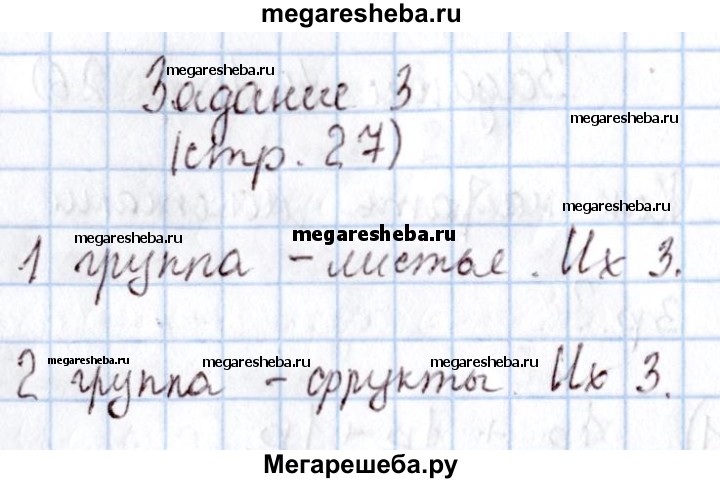 megaresheba.ru
Задание 3
megaresheba.ru
megaresheba.ru
(стр. 27)
megaresheba.ru
megaresheba.ru
megaresheba.ru
1 группа – листья. Их 3.
megaresheba.ru
megaresheba.ru
megaresheba.ru
2 группа – фрукты. Их 3.
Мегарешеба.ру